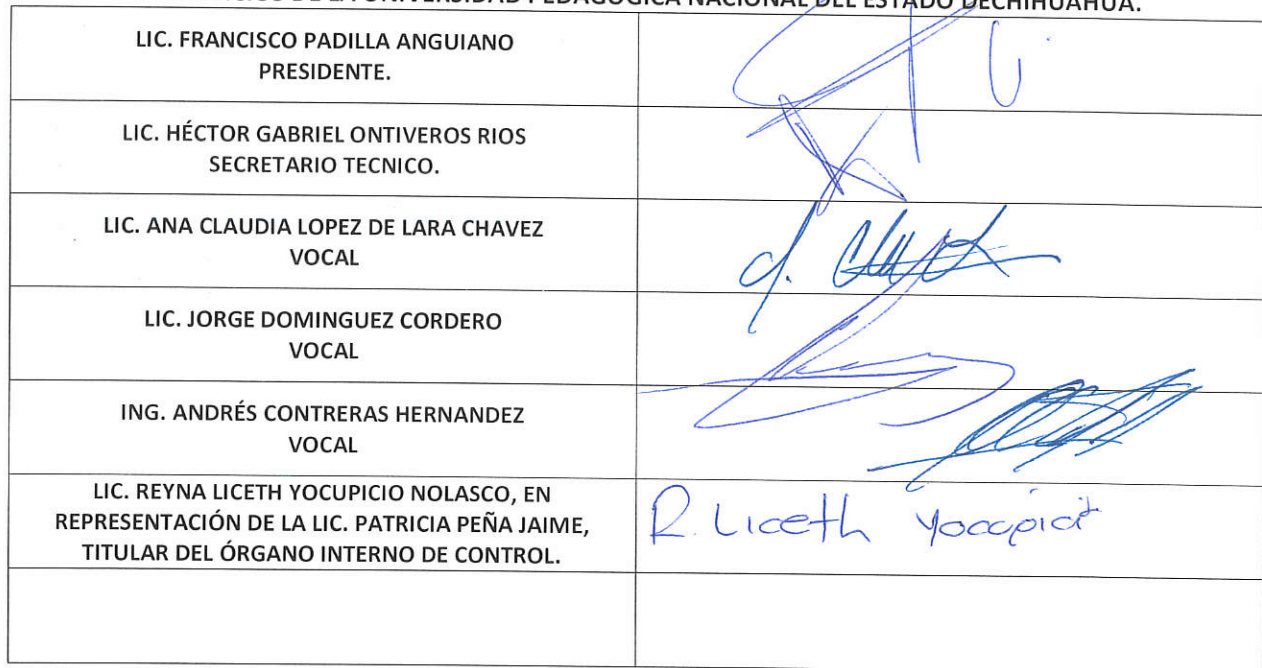 DE LA UNIVERSIDAD PEDAGÓGICA NACIONAL DEL ESTADO DECHIHUAHUA.
LIC. FRANCISCO PADILLA ANGUIANO
PRESIDENTE.
LIC. HÉCTOR GABRIEL ONTIVEROS RIOS
SECRETARIO TECNICO.
LIC. ANA CLAUDIA LOPEZ DE LARA CHAVEZ
VOCAL
LIC. JORGE DOMINGUEZ CORDERO
VOCAL
ING. ANDRÉS CONTRERAS HERNANDEZ
VOCAL
LIC. REYNA LICETH YOCUPICIO NOLASCO, EN
REPRESENTACIÓN DE LA LIC. PATRICIA PEÑA JAIME,
TITULAR DEL ÓRGANO INTERNO DE CONTROL.
R. Liceth